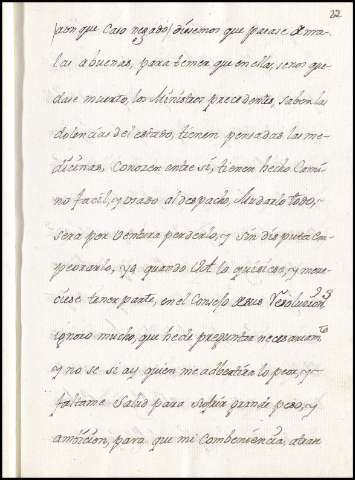 22
aun que caso negado diesemos que pasase de ma-
las a buenas, para temer que en ellas, se nos que-
dase muerto, los Ministros precedentes, saben las
dolencias del estado, tienen pensadas las me-
dicinas, Conozen entre si, tienen hecho Cami-
no facil, y usado al despacho, Mudarlo todo,
sera por ventura perderlo, y sin disputa em-
peorarlo, y a quando lo quisiese, y mere-
ciese tener parte, en el Consejo de sus Resoluciones
ignoro mucho, que he de preguntar necesariamte
y no se si ay quien me advertira lo peor, y
faltame salud para sufrir grande peso, y
ambicion, para que mi combeniencia,